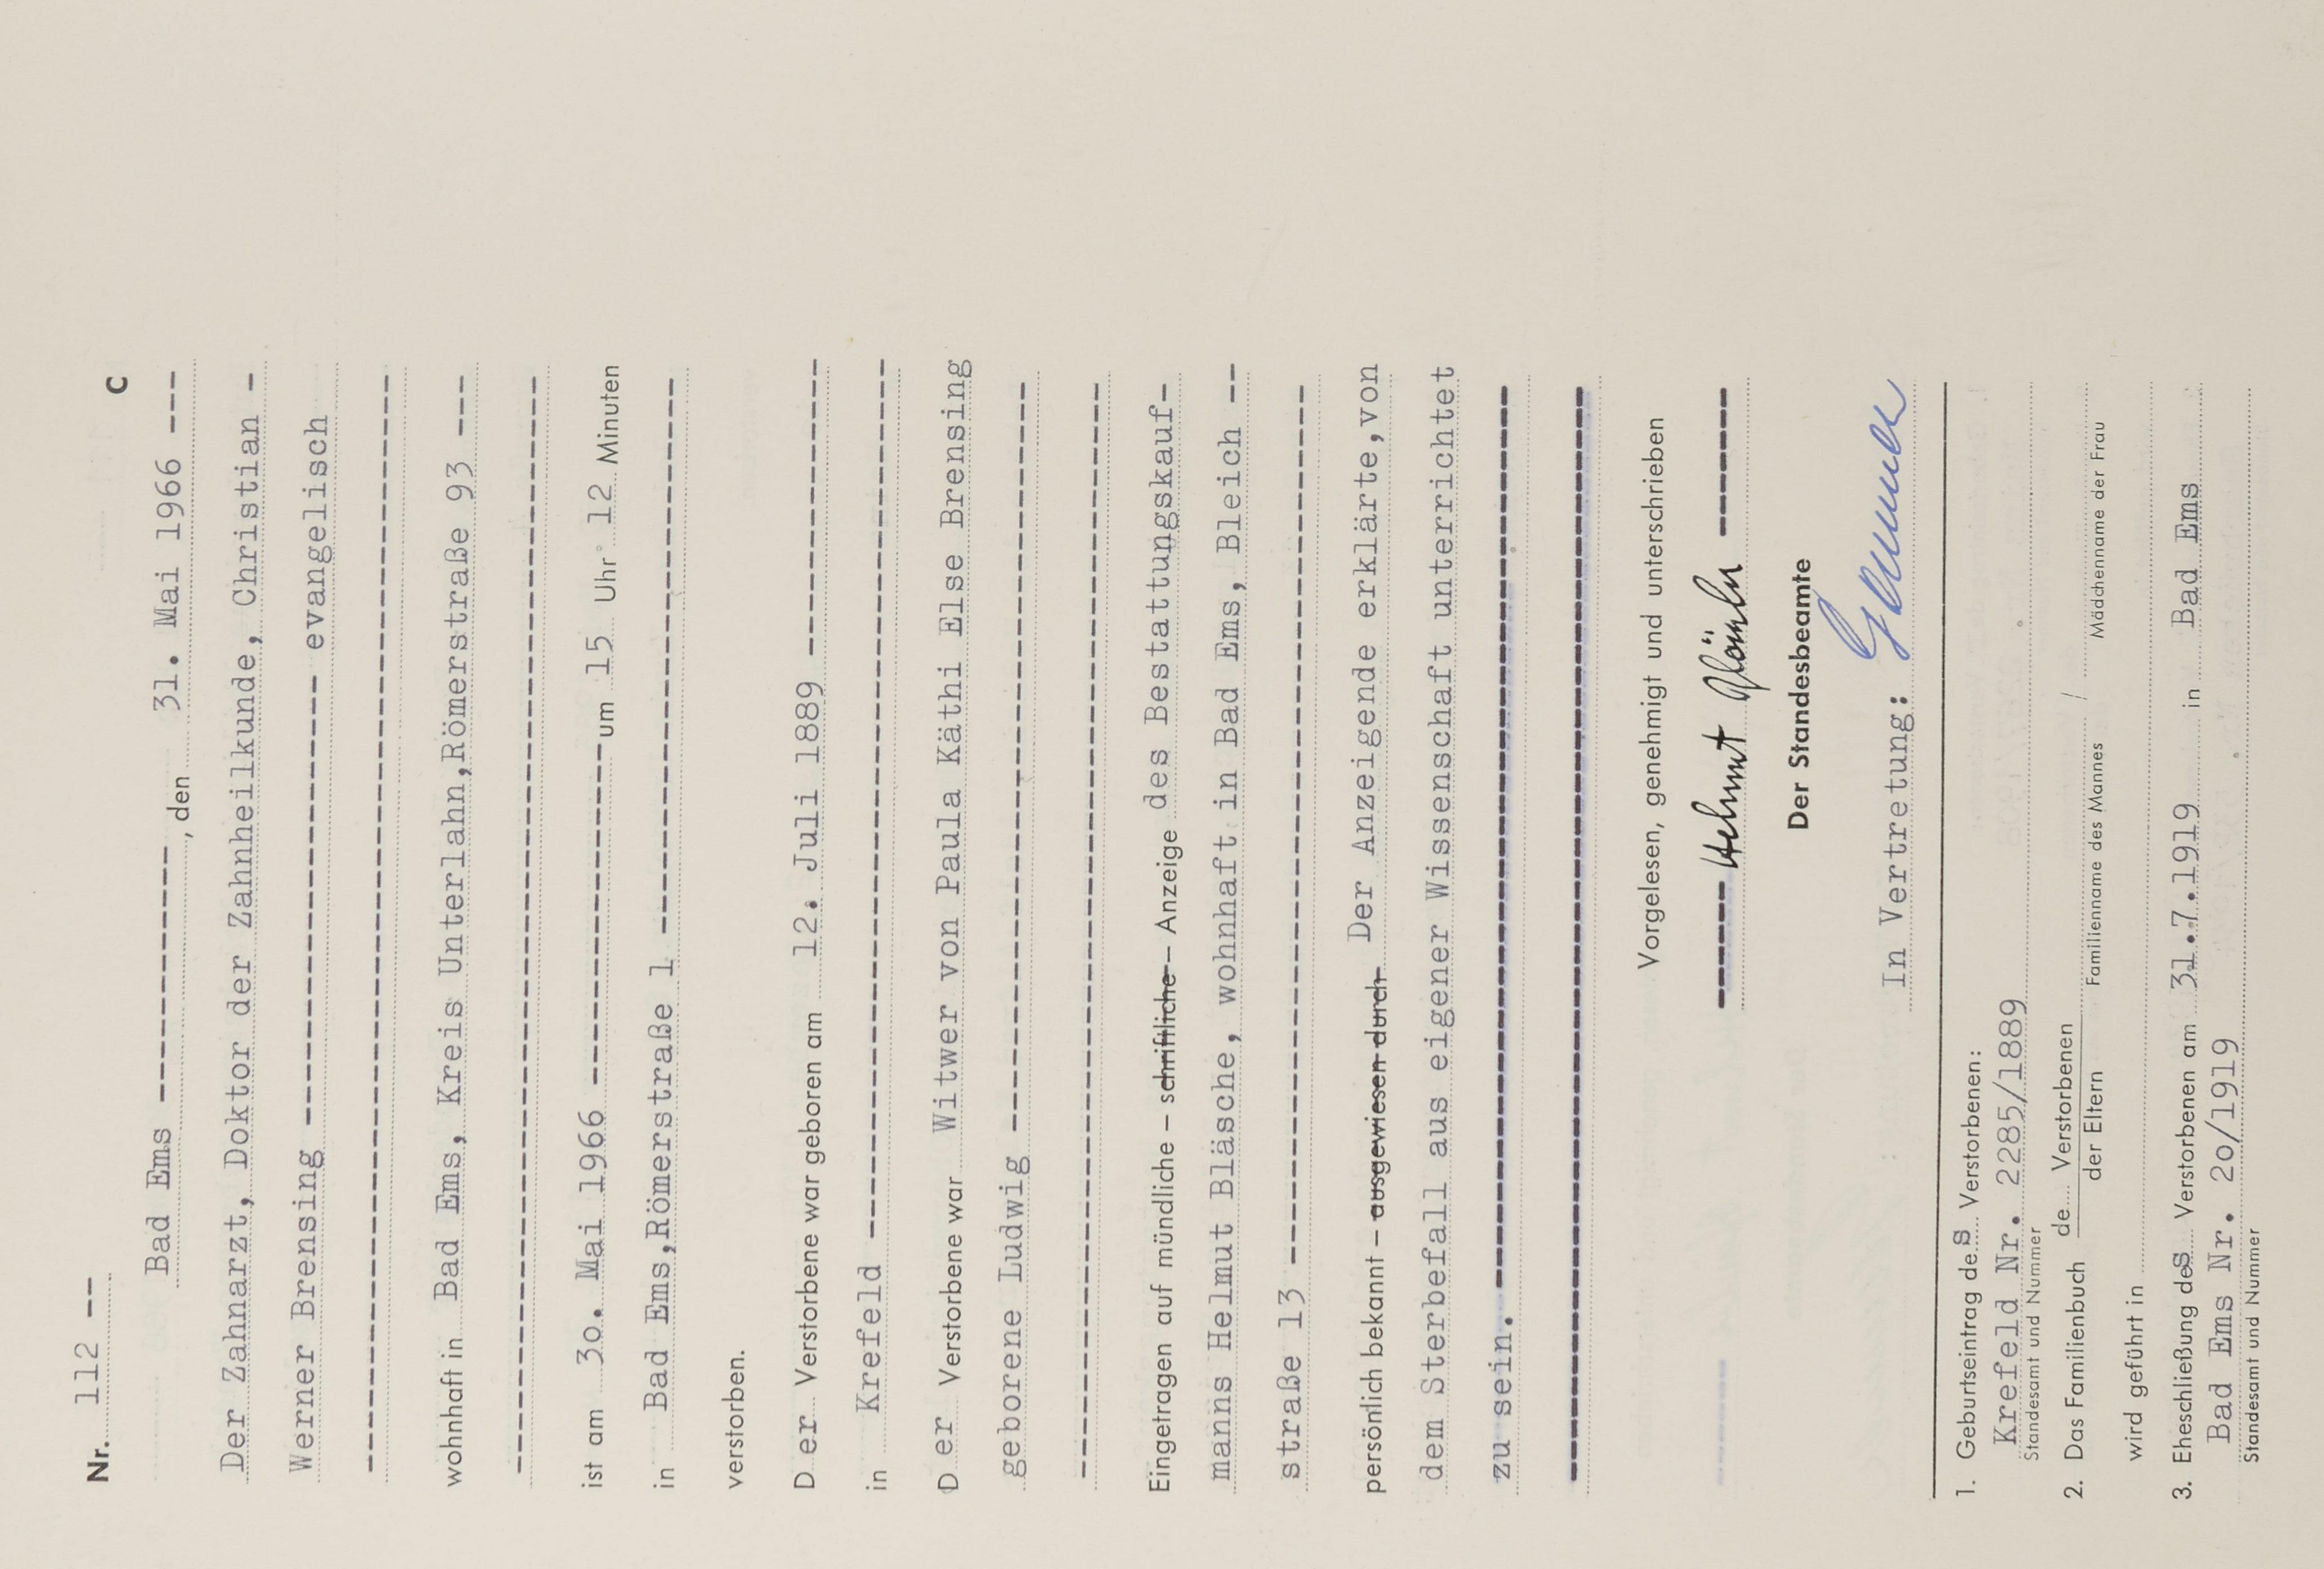 Nr. 112 --
C
Bad Ems ---------------, den 31. Mai 1966 ---
Der Zahnarzt, Doktor der Zahnheilkunde, Christian -
Werner Brensing -------------------------- evangelisch
wohnhaft in Bad Ems, Kreis Unterlahn,Römerstraße 93 ---
ist am 3o. Mai 1966 --------------------um 15 Uhr 12 Minuten
in Bad Ems,Römerstraße 1 --------------------------------
verstorben.
D er Verstorbene war geboren am 12. Juli 1889 -----------------
in Krefeld ---------------------------------------------------
D er Verstorbene war Witwer von Paula Käthi Else Brensing
geborene Ludwig --------------------------------------------
Eingetragen auf mündliche – schriftliche – Anzeige des Bestattungskauf-
manns Helmut Bläsche, wohnhaft in Bad Ems, Bleich --
straße 13 ---------------------------------------------------
persönlich bekannt – ausgewiesen durch Der Anzeigende erklärte,von
dem Sterbefall aus eigener Wissenschaft unterrichtet
zu sein. ----------------------------------------------------
Vorgelesen, genehmigt und unterschrieben
------- Helmut Bläsche --------
Der Standesbeamte
In Vertretung:
1. Geburtseintrag des Verstorbenen:
Krefeld Nr. 2285/1889
Standesamt und Nummer
2. Das Familienbuch de Verstorbenen /
der Eltern Familienname des Mannes Mädchenname der Frau
wird geführt in
3. Eheschließung des Verstorbenen am 31.7.1919 in Bad Ems
Bad Ems Nr. 2o/1919
Standesamt und Nummer